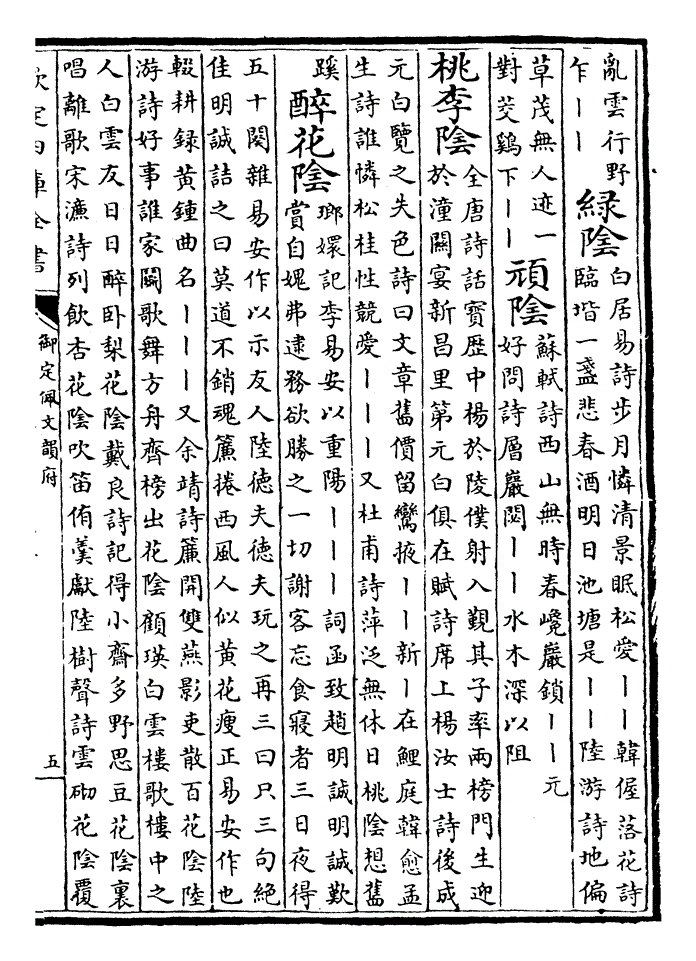 亂雲行野
乍ーー
綠陰
白居易詩步月憐清景眠松愛ーー韓偓落花詩
臨堦一盞悲春酒明日池塘是ーー陸游詩地偏
草茂無人迹一
對茭鷄下ーー
頑陰
蘇軾詩西山無時春巉巖鎖ーー元
好問詩層巖閟ーー水木深以阻
桃李陰
全唐詩話寶歷中楊於陵僕射入覲其子率兩榜門生迎
於潼關宴新昌里第元白俱在賦詩席上楊汝士詩後成
元白覽之失色詩曰文章舊價留鸞掖ーー新ー在鯉庭韓愈孟
生詩誰憐松桂性競愛ーーー又杜甫詩萍泛無休日桃陰想舊
蹊
醉花陰
瑯嬛記李易安以重陽ーーー詞函致趙明誠明誠歎
賞自媿弗逮務欲勝之一切謝客忘食寢者三日夜得
五十闋雜易安作以示友人陸德夫德夫玩之再三曰只三句絕
佳明誠詰之曰莫道不銷魂簾捲西風人似黃花瘦正易安作也
輟耕録黃鍾曲名ーーー又余靖詩簾開雙燕影吏散百花陰陸
游詩好事誰家闘歌舞方舟齊榜出花陰顧瑛白雲樓歌樓中之
人白雲友日日醉卧梨花陰戴良詩記得小齋多野思豆花陰裏
唱離歌宋濂詩列飲杏花陰吹笛侑羹獻陸樹聲詩雲砌花陰覆
欽定四庫全書
御定佩文韻府
五